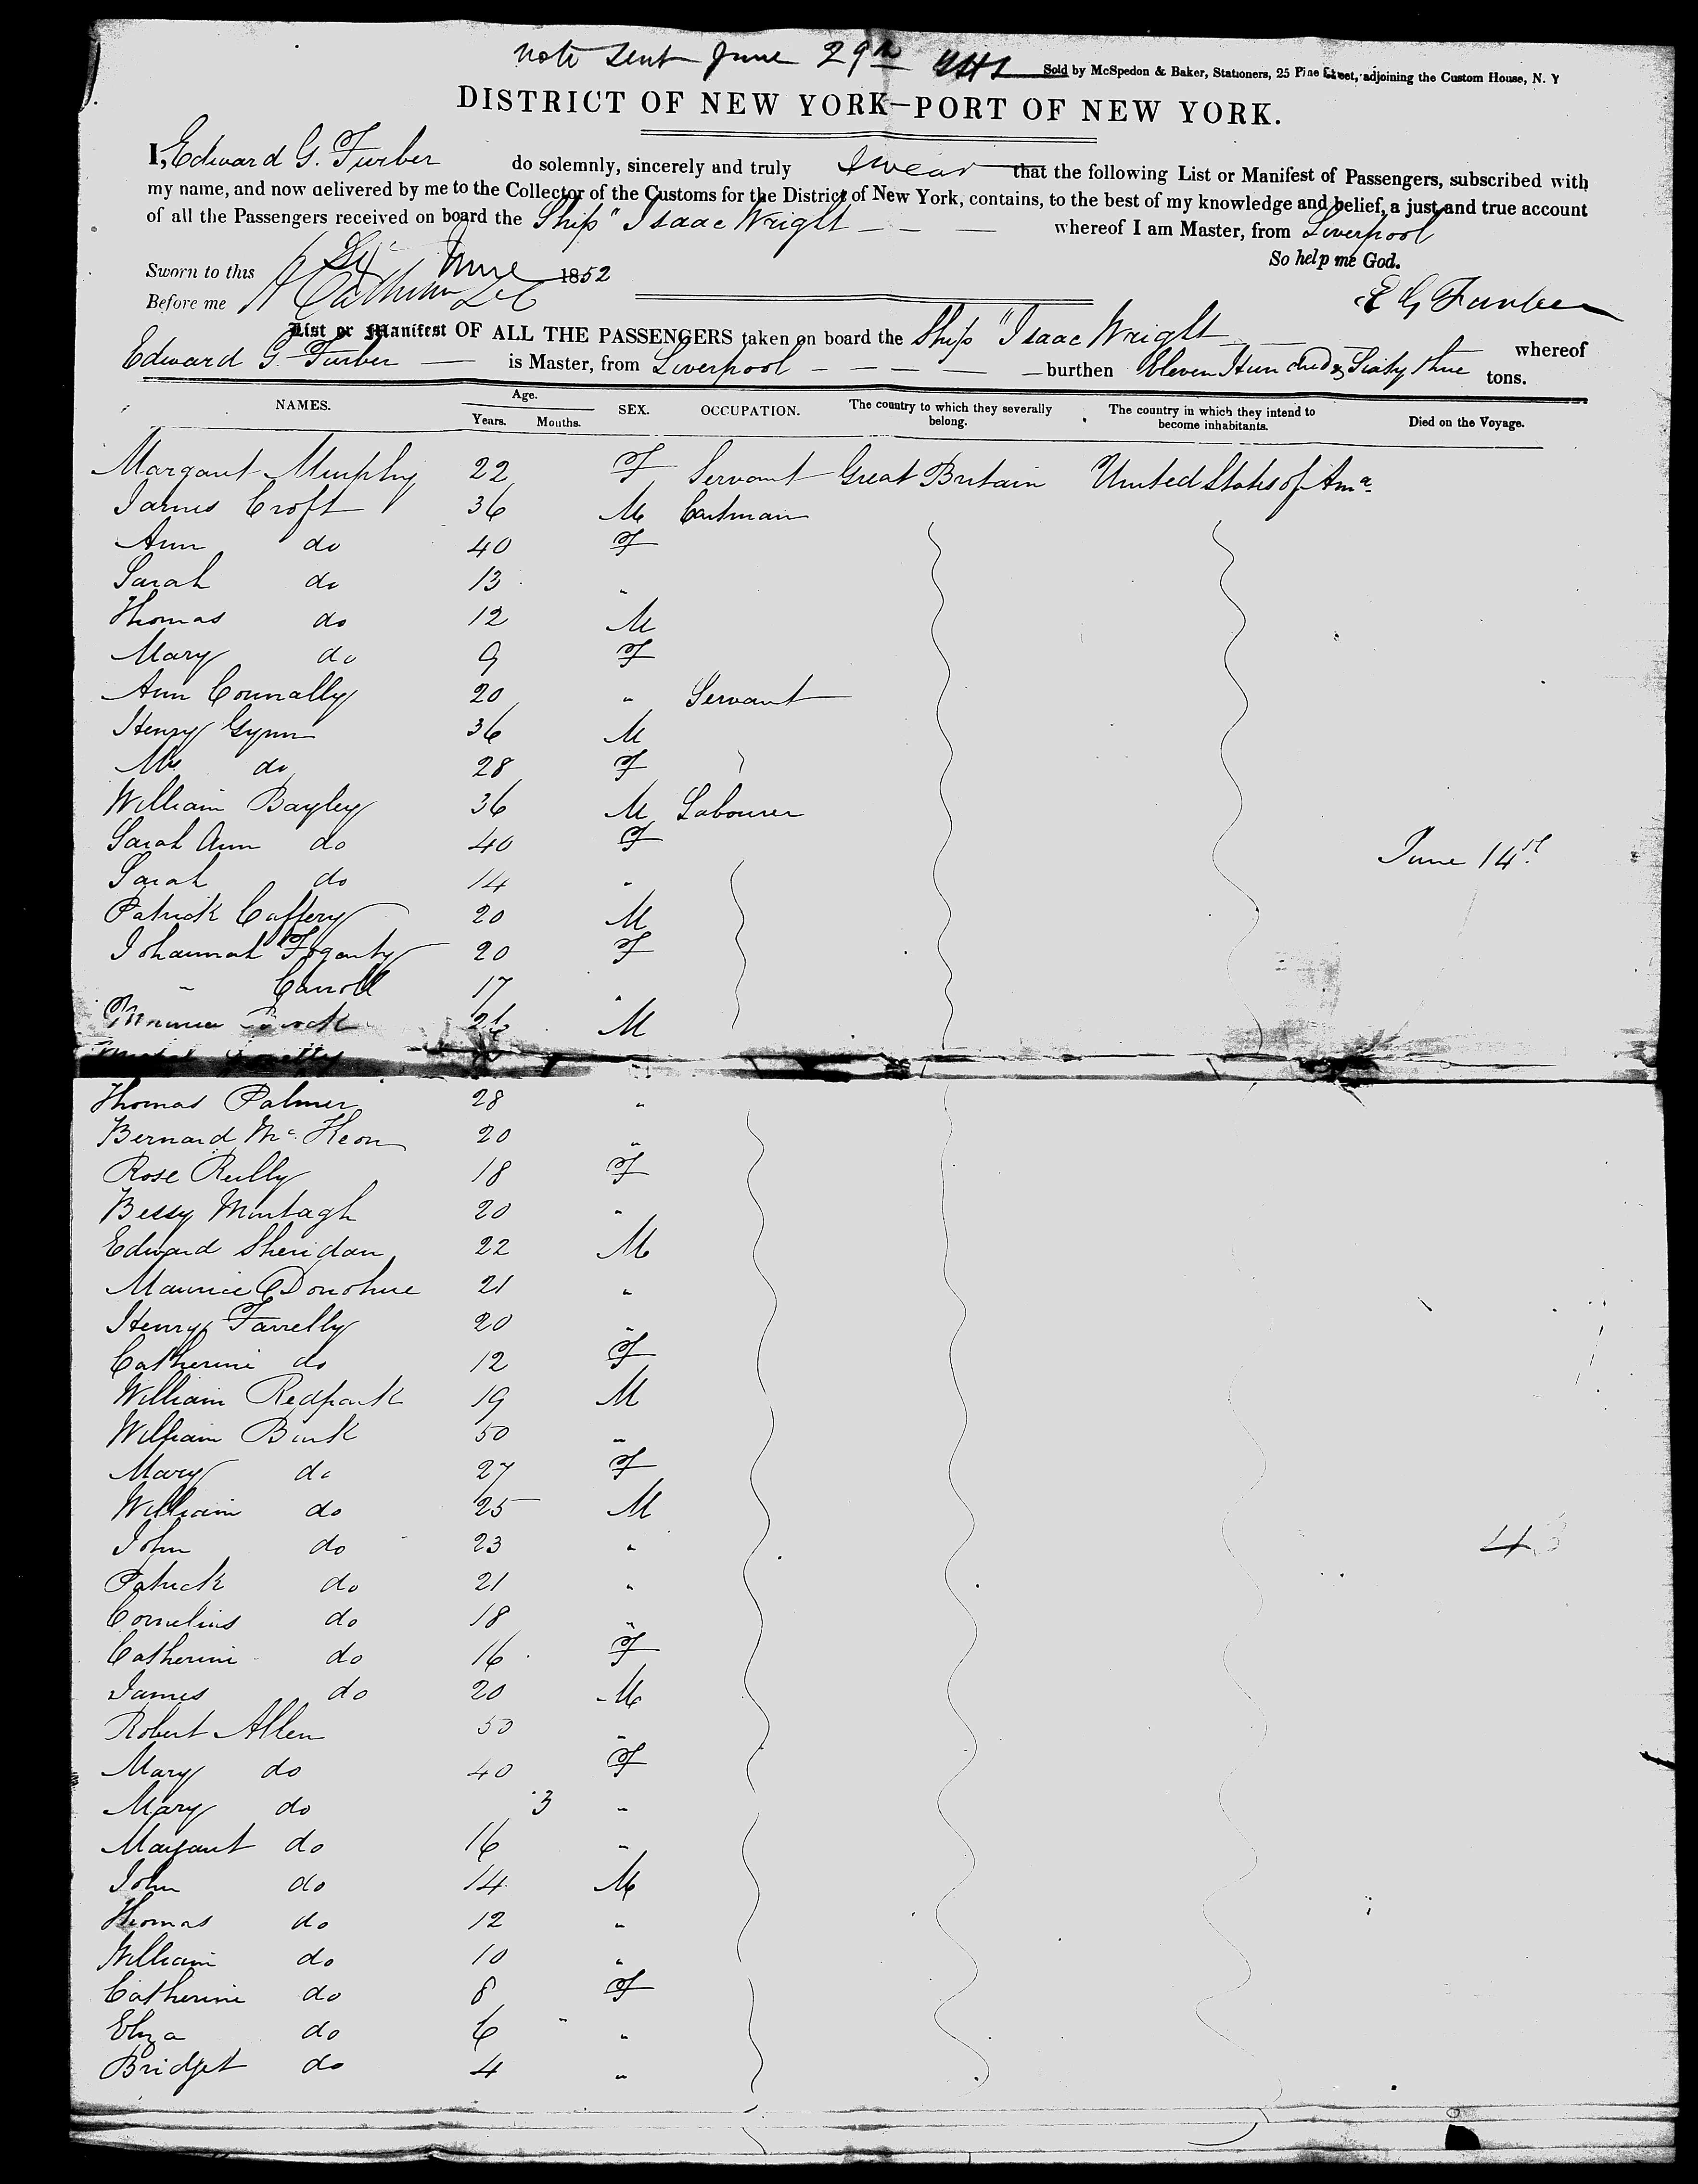 Note Sent June 29th
Sold by McSpedon & Baker, Stationers, 25 Pine Street, adjoining the Custom House, N. Y
DISTRICT OF NEW YORK—PORT OF NEW YORK.
I, Edward G. Furber do solemnly, sincerely and truly swear that the following List or Manifest of Passengers, subscribed with
my name, and now delivered by me to the Collector of the Customs for the District of New York, contains, to the best of my knowledge and belief, a just and true account
of all the Passengers received on board the Ship "Isaac Wright whereof I am Master, from Liverpool
So help me God.
Sworn to this June 1852
Before me
E G Furber
List or Manifest OF ALL THE PASSENGERS taken on board the Ship "Isaac Wright whereof
Edward G. Furber is Master, from Liverpool burthen Eleven Hundred & Sixty three tons.
NAMES. Age. Years. Months. SEX. OCCUPATION. The country to which they severally belong. The country in which they intend to become inhabitants. Died on the Voyage.
Margaret Murphy 22 F Servant Great Britain United States of Ama
James Croft 36 M Cartman
Ann do 40 F
Sarah do 13 "
Thomas do 12 M
Mary do 9 F
Ann Connally 20 " Servant
Henry Gynn 36 M
Mrs do 28 F
William Bayley 36 M Labourer
Sarah Ann do 40 F June 14th
Sarah do 14 "
Patrick Caffery 20 M
Johannah Fogarty 20 F
" Carroll 17 "
M
Thomas Palmer 28 "
Bernard McKeon 20 "
Rose Reilly 18 F
Bessy Murtagh 20 "
Edward Sheridan 22 M
Maurice ODonohue 21 "
Henry Farrelly 20 "
Catherine do 12 F
William Redpath 19 M
William Burk 50 "
Mary do 27 F
William do 25 M
John do 23 " 43
Patrick do 21 "
Cornelius do 18 "
Catherine do 16 F
James do 20 M
Robert Allen 50 "
Mary do 40 F
Mary do 3 "
Margaret do 16 "
John do 14 M
Thomas do 12 "
William do 10 "
Catherine do 8 F
Eliza do 6 "
Bridget do 4 "